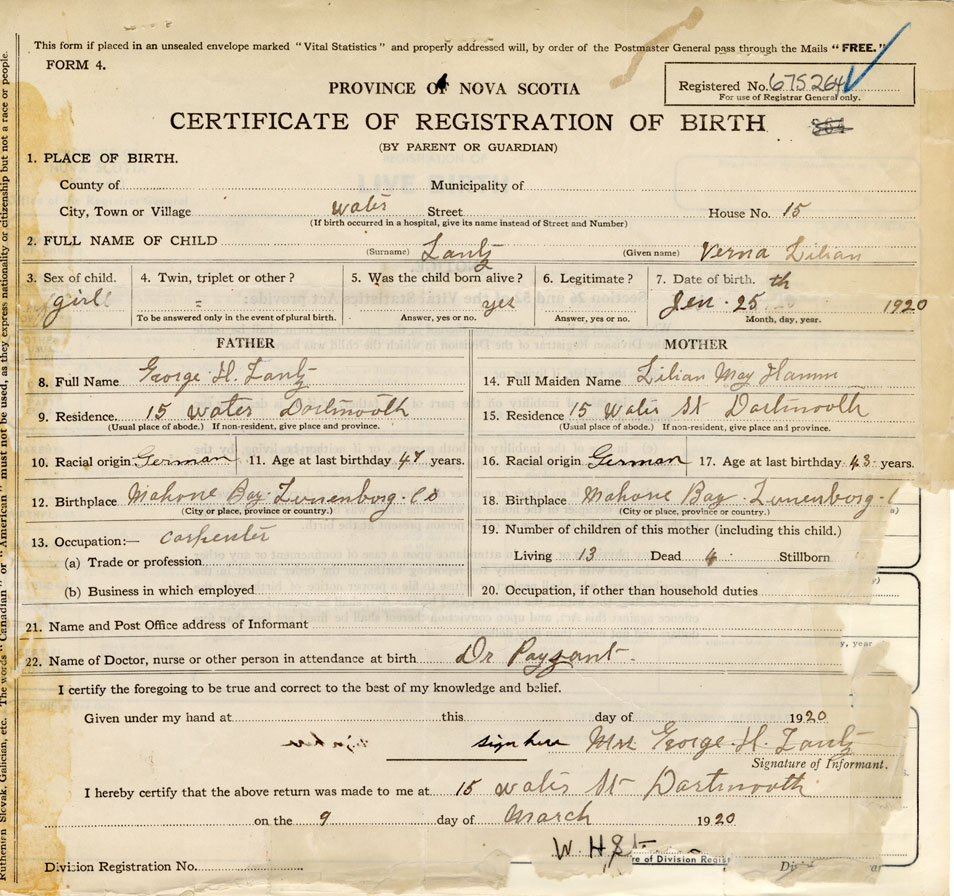 This form if placed in an unsealed envelope marked "Vital Statistics" and properly addressed will, by order of the Postmaster General pass through the Mails "FREE."
FORM 4.
Registered No. 675264
For use of Registrar General only.
PROVINCE OF NOVA SCOTIA
CERTIFICATE OF REGISTRATION OF BIRTH
(BY PARENT OR GUARDIAN)
1. PLACE OF BIRTH.
County of Municipality of
City, Town or Village Water Street House No. 15
(If birth occurred in a hospital, give its name instead of Street and Number)
2. FULL NAME OF CHILD (Surname) Lantz (Given name) Verna Lilian
3. Sex of child. 4. Twin, triplet or other? 5. Was the child born alive? 6. Legitimate? 7. Date of birth. th
girl = yes Jen. 25 1920
To be answered only in the event of plural birth. Answer, yes or no. Answer, yes or no. Month, day, year.
FATHER MOTHER
8. Full Name George H. Lantz 14. Full Maiden Name Lilian May Hamm
9. Residence 15 Water Dartmouth 15. Residence 15 Water St Dartmouth
(Usual place of abode.) If non-resident, give place and province. (Usual place of abode.) If non-resident, give place and province.
10. Racial origin German 11. Age at last birthday 47 years. 16. Racial origin German 17. Age at last birthday 43 years.
12. Birthplace Mahone Bay Lunenborg Co 18. Birthplace Mahone Bay Lunenborg
(City or place, province or country.) (City or place, province or country.)
13. Occupation:— Carpenter 19. Number of children of this mother (including this child.)
(a) Trade or profession Living 13 Dead 4 Stillborn
(b) Business in which employed 20. Occupation, if other than household duties
21. Name and Post Office address of Informant
y, year
22. Name of Doctor, nurse or other person in attendance at birth Dr Payzant
I certify the foregoing to be true and correct to the best of my knowledge and belief.
Given under my hand at this day of 1920
sign here Mrs George H. Lantz
Signature of Informant.
I hereby certify that the above return was made to me at 15 Water St Dartmouth
on the 9 day of March 1920
W. H.
re of Division Regi
Division Registration No.
Ruthenien Slovak, Galician, etc. The words "Canadian" or "American" must not be used, as they express nationality or citizenship but not a race or people.